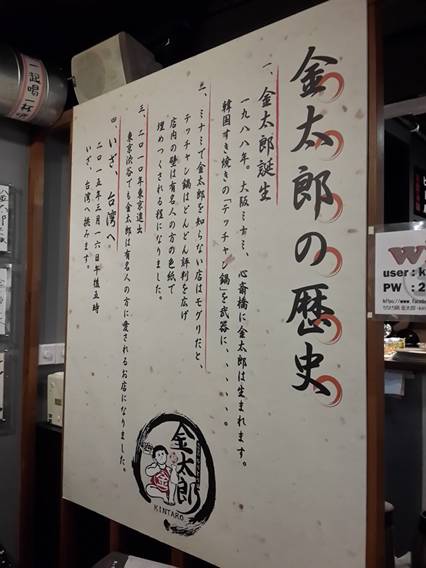 金太郎の歴史
一、金太郎誕生
一九八八年。大阪ミナミ、心斎橋に金太郎は生まれます。
韓国すき焼きの「テッチャン鍋」を武器に、、、、、。
二、ミナミで金太郎を知らない店はモグリだと、
テッチャン鍋はどんどん評判を広げ
店内の壁は有名人の方の色紙で
埋めつくされる程になりました。
三、二〇一〇年東京進出
東京渋谷でも金太郎は有名人の方に愛されるお店になりました。
四、いざ、台湾へ。
二〇一五年三月一六日午後五時
いざ、台湾へ挑みます。
金太郎
KINTARO
一起喝一杯
user : k
PW : 2